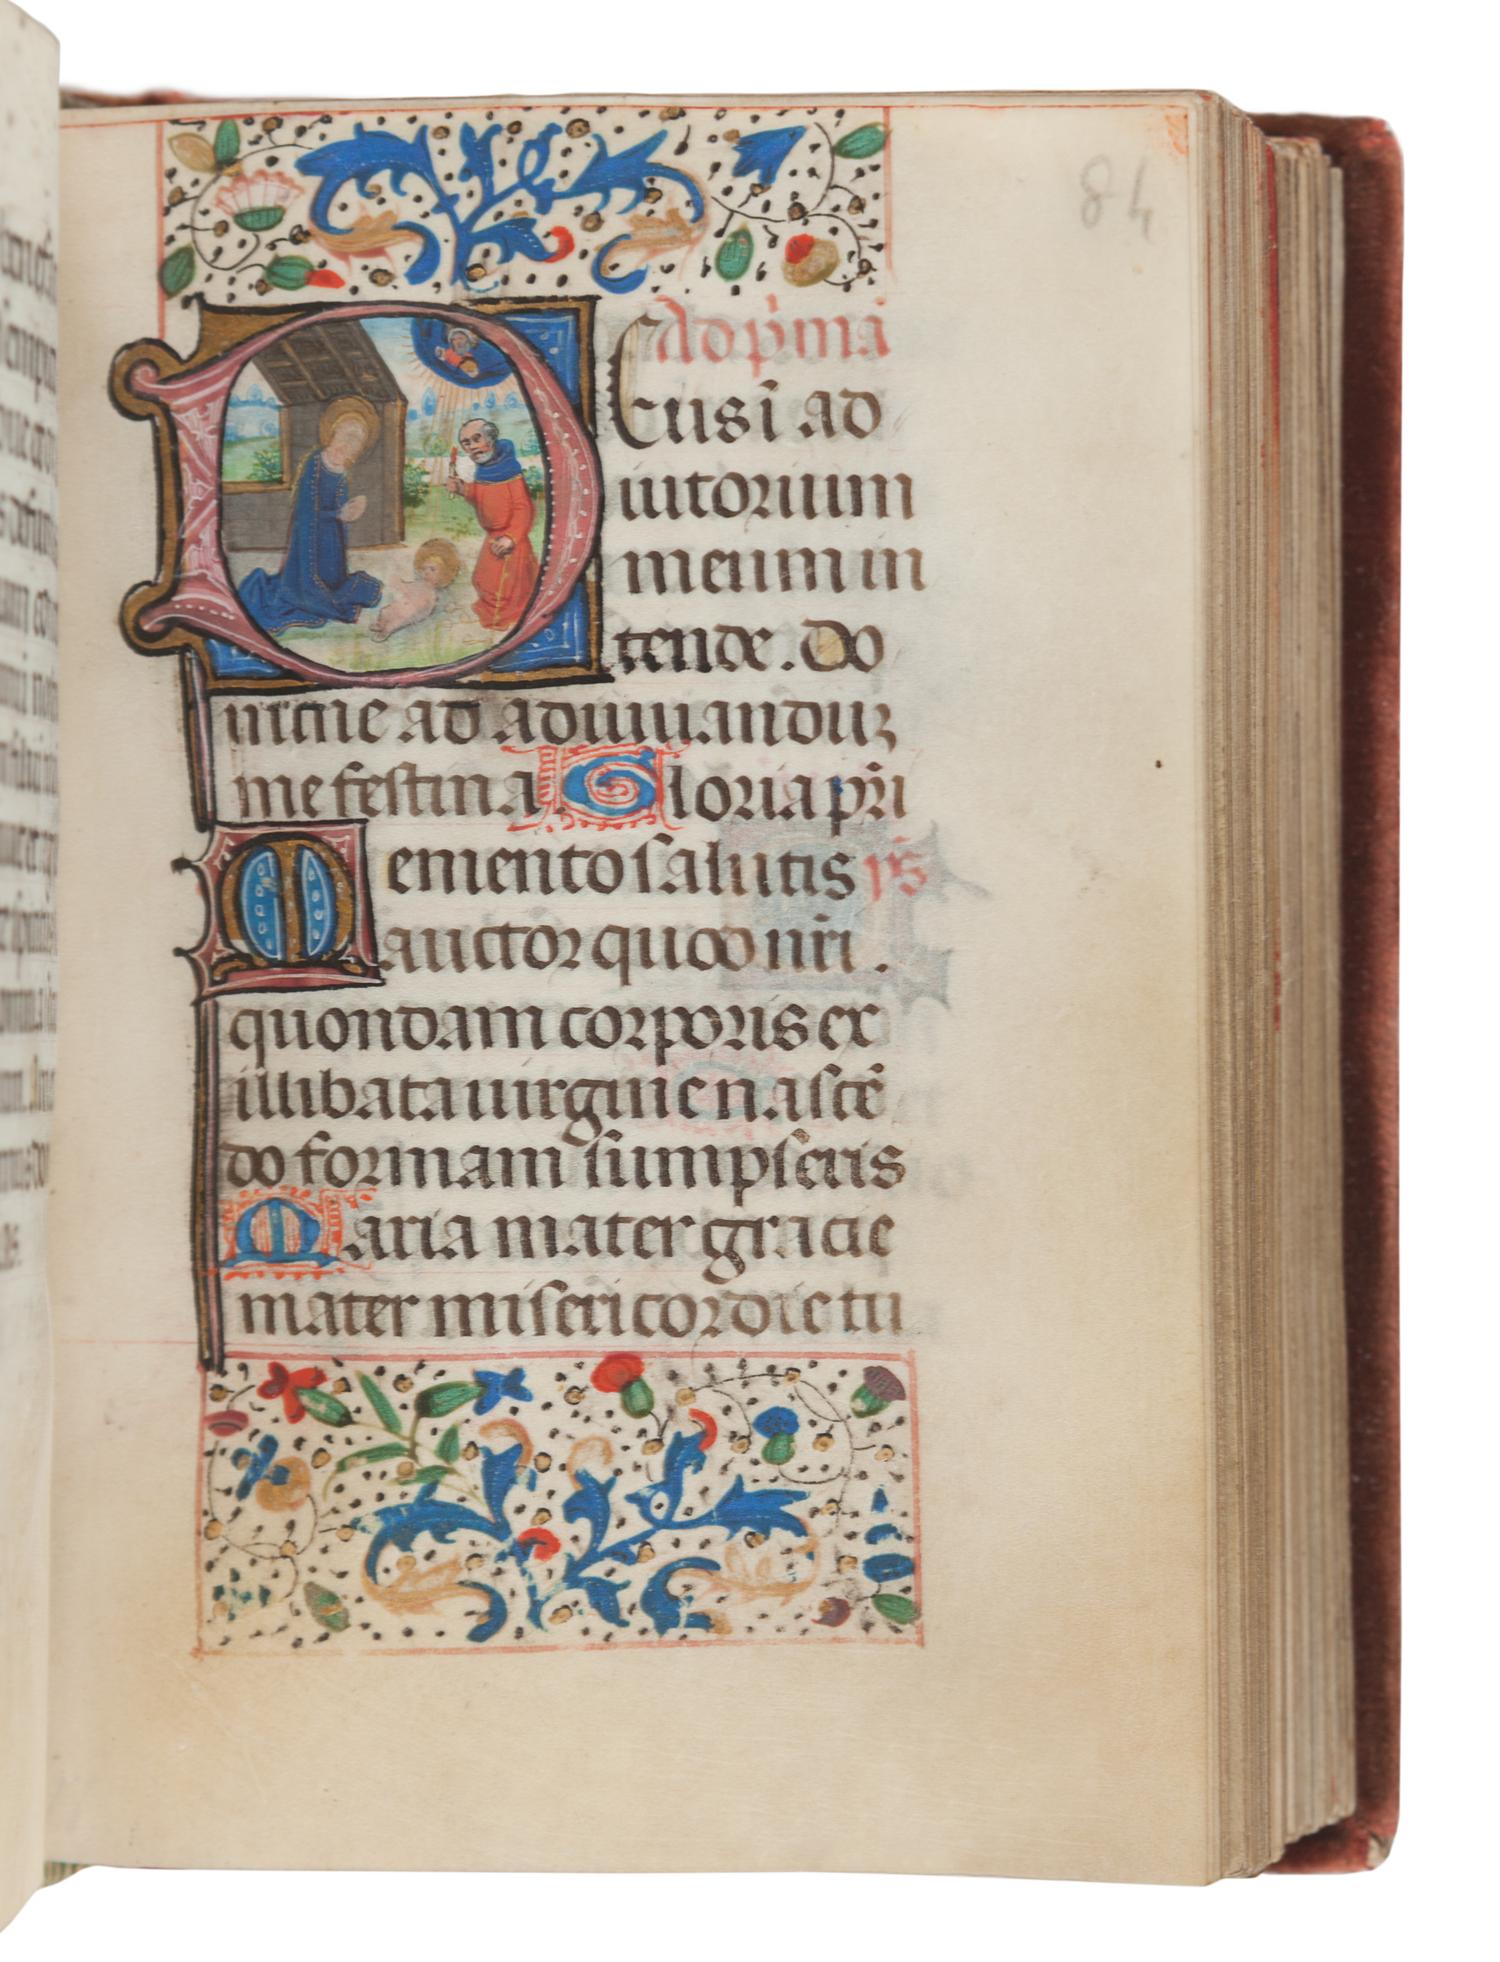 84
Ad p̄mā
Deus ī ad
iutorium
meum in
tende. Do
mine ad adiuuanduʒ
me festina. Gloria pr̄i
Memento salutis ps̄
auctor quod nr̄i.
quondam corporis ex
illibata uirgine nascē
do formam sumpseris
Maria mater gracie
mater misericordie tu